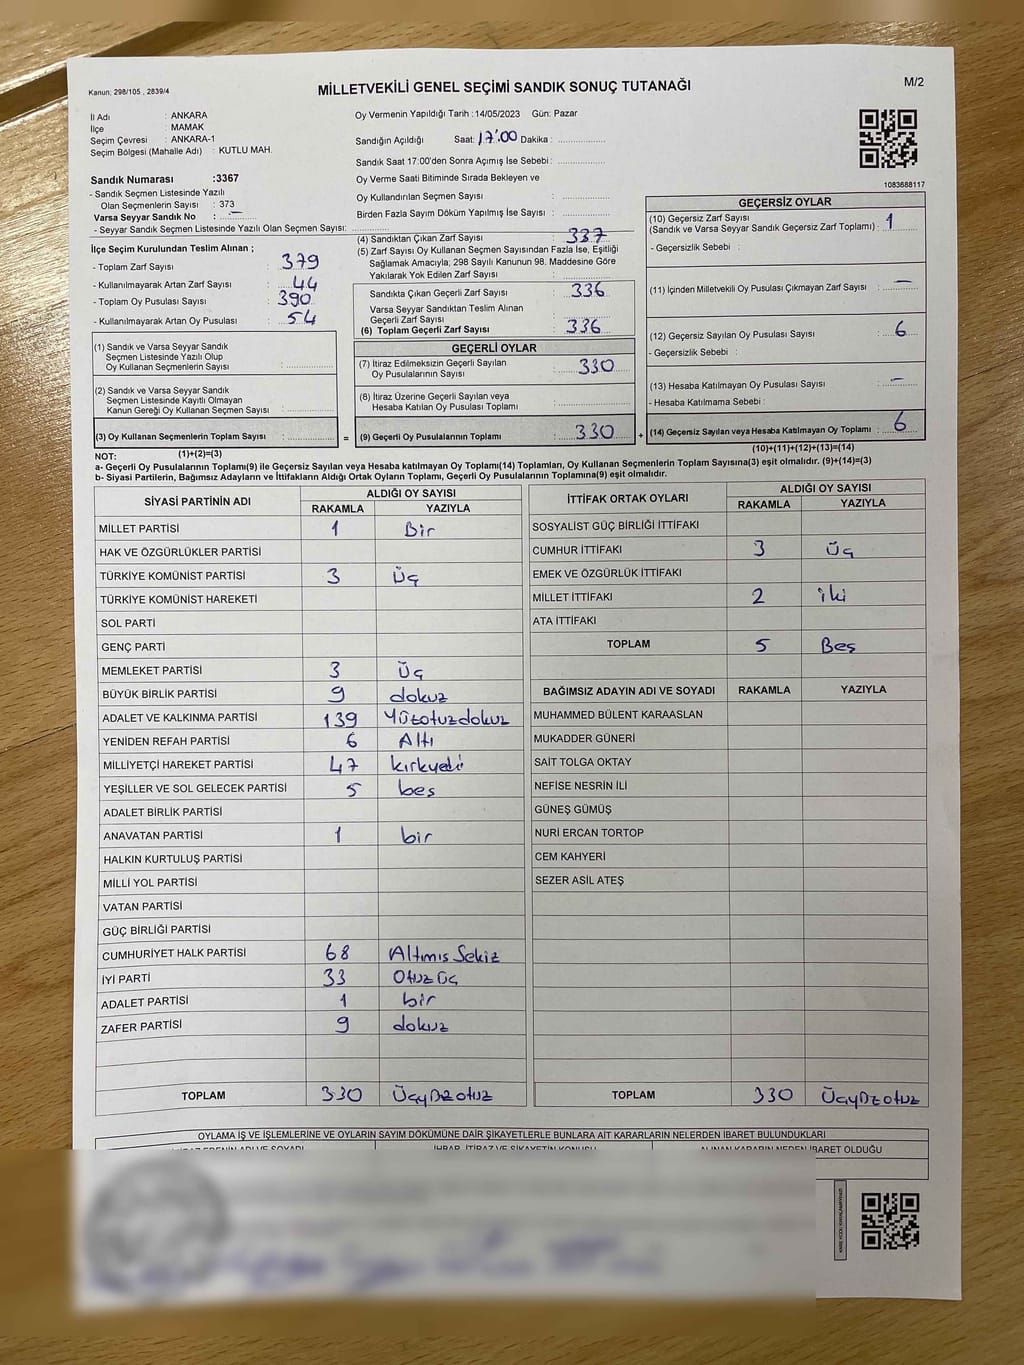 Kanun; 298/105 , 2839/4
MİLLETVEKİLİ GENEL SEÇİMİ SANDIK SONUÇ TUTANAĞI
M/2
İl Adı : ANKARA
İlçe : MAMAK
Seçim Çevresi : ANKARA-1
Seçim Bölgesi (Mahalle Adı) : KUTLU MAH.
Sandık Numarası :3367
- Sandık Seçmen Listesinde Yazılı
Olan Seçmenlerin Sayısı : 373
Varsa Seyyar Sandık No : -
- Seyyar Sandık Seçmen Listesinde Yazılı Olan Seçmen Sayısı:
İlçe Seçim Kurulundan Teslim Alınan ;
- Toplam Zarf Sayısı : 379
- Kullanılmayarak Artan Zarf Sayısı : 44
- Toplam Oy Pusulası Sayısı : 390
- Kullanılmayarak Artan Oy Pusulası : 54
(1) Sandık ve Varsa Seyyar Sandık
Seçmen Listesinde Yazılı Olup
Oy Kullanan Seçmenlerin Sayısı :
(2) Sandık ve Varsa Seyyar Sandık
Seçmen Listesinde Kayıtlı Olmayan
Kanun Gereği Oy Kullanan Seçmen Sayısı :
(3) Oy Kullanan Seçmenlerin Toplam Sayısı :
(1)+(2)=(3)
Oy Vermenin Yapıldığı Tarih : 14/05/2023 Gün: Pazar
Sandığın Açıldığı Saat: 17:00 Dakika :
Sandık Saat 17:00'den Sonra Açımış İse Sebebi :
Oy Verme Saati Bitiminde Sırada Bekleyen ve
Oy Kullandırılan Seçmen Sayısı :
Birden Fazla Sayım Döküm Yapılmış İse Sayısı :
(4) Sandıktan Çıkan Zarf Sayısı : 337
(5) Zarf Sayısı Oy Kullanan Seçmen Sayısından Fazla İse, Eşitliği
Sağlamak Amacıyla; 298 Sayılı Kanunun 98. Maddesine Göre
Yakılarak Yok Edilen Zarf Sayısı :
Sandıkta Çıkan Geçerli Zarf Sayısı : 336
Varsa Seyyar Sandıktan Teslim Alınan
Geçerli Zarf Sayısı :
(6) Toplam Geçerli Zarf Sayısı : 336
GEÇERLİ OYLAR
(7) İtiraz Edilmeksizin Geçerli Sayılan
Oy Pusulalarının Sayısı : 330
(8) İtiraz Üzerine Geçerli Sayılan veya
Hesaba Katılan Oy Pusulası Toplamı :
= (9) Geçerli Oy Pusulalarının Toplamı : 330
1083688117
GEÇERSİZ OYLAR
(10) Geçersiz Zarf Sayısı
(Sandık ve Varsa Seyyar Sandık Geçersiz Zarf Toplamı) : 1
- Geçersizlik Sebebi :
(11) İçinden Milletvekili Oy Pusulası Çıkmayan Zarf Sayısı : -
(12) Geçersiz Sayılan Oy Pusulası Sayısı : 6
- Geçersizlik Sebebi :
(13) Hesaba Katılmayan Oy Pusulası Sayısı : -
- Hesaba Katılmama Sebebi :
+ (14) Geçersiz Sayılan veya Hesaba Katılmayan Oy Toplamı : 6
(10)+(11)+(12)+(13)=(14)
NOT:
a- Geçerli Oy Pusulalarının Toplamı(9) ile Geçersiz Sayılan veya Hesaba katılmayan Oy Toplamı(14) Toplamları, Oy Kullanan Seçmenlerin Toplam Sayısına(3) eşit olmalıdır. (9)+(14)=(3)
b- Siyasi Partilerin, Bağımsız Adayların ve İttifakların Aldığı Ortak Oyların Toplamı, Geçerli Oy Pusulalarının Toplamına(9) eşit olmalıdır.
SİYASİ PARTİNİN ADI ALDIĞI OY SAYISI
RAKAMLA YAZIYLA
MİLLET PARTİSİ 1 Bir
HAK VE ÖZGÜRLÜKLER PARTİSİ
TÜRKİYE KOMÜNİST PARTİSİ 3 Üç
TÜRKİYE KOMÜNİST HAREKETİ
SOL PARTİ
GENÇ PARTİ
MEMLEKET PARTİSİ 3 Üç
BÜYÜK BİRLİK PARTİSİ 9 dokuz
ADALET VE KALKINMA PARTİSİ 139 Yüzotuzdokuz
YENİDEN REFAH PARTİSİ 6 Altı
MİLLİYETÇİ HAREKET PARTİSİ 47 kırkyedi
YEŞİLLER VE SOL GELECEK PARTİSİ 5 beş
ADALET BİRLİK PARTİSİ
ANAVATAN PARTİSİ 1 bir
HALKIN KURTULUŞ PARTİSİ
MİLLİ YOL PARTİSİ
VATAN PARTİSİ
GÜÇ BİRLİĞİ PARTİSİ
CUMHURİYET HALK PARTİSİ 68 Altmış Sekiz
İYİ PARTİ 33 Otuz üç
ADALET PARTİSİ 1 bir
ZAFER PARTİSİ 9 dokuz
TOPLAM 330 Üçyüzotuz
İTTİFAK ORTAK OYLARI ALDIĞI OY SAYISI
RAKAMLA YAZIYLA
SOSYALİST GÜÇ BİRLİĞİ İTTİFAKI
CUMHUR İTTİFAKI 3 Üç
EMEK VE ÖZGÜRLÜK İTTİFAKI
MİLLET İTTİFAKI 2 iki
ATA İTTİFAKI
TOPLAM 5 Beş
BAĞIMSIZ ADAYIN ADI VE SOYADI RAKAMLA YAZIYLA
MUHAMMED BÜLENT KARAASLAN
MUKADDER GÜNERİ
SAİT TOLGA OKTAY
NEFİSE NESRİN İLİ
GÜNEŞ GÜMÜŞ
NURİ ERCAN TORTOP
CEM KAHYERİ
SEZER ASİL ATEŞ
TOPLAM 330 Üçyüzotuz
OYLAMA İŞ VE İŞLEMLERİNE VE OYLARIN SAYIM DÖKÜMÜNE DAİR ŞİKAYETLERLE BUNLARA AİT KARARLARIN NELERDEN İBARET BULUNDUKLARI
İHBAR, İTİRAZ VE ŞİKAYETİN KONUSU ALINAN KARARIN NEDEN İBARET OLDUĞU